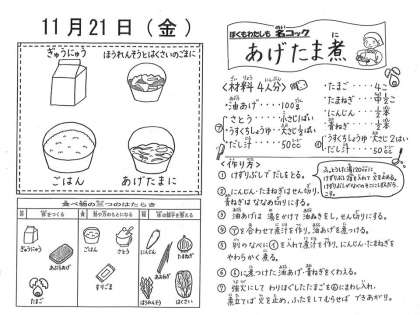 11月21日（金）
ぎゅうにゅう
ほうれんそうとはくさいのごまに
ごはん
あげたまに
食べ物の三つのはたらき
をつくる
ぎゅうにゅう
あぶらあげ
たまご
ごはん
さとう
すりごま
にんじん
ほうれんそう
はくさい
ぼくもわたしも 名コック
あげたま煮
＜材料 4人分＞
・油あげ・・・・100g
・さとう・・・・小さじ1ぱい
・うすくちしょうゆ・大さじ2はい
・だし汁・・・・50cc
・たまご・・・・4こ
・たまねぎ
・にんじん
・青ねぎ
・うすくちしょうゆ
・だし汁・・・・50cc
＜作り方＞
① けずりぶしで だしをとる。
② にんじん・たまねぎはせん切り、
青ねぎはななめ切りにする。
③ 油あげは 湯をかけて油ぬきをし、せん切りにする。
④ を合わせて煮汁を作り、油あげを煮つける。
⑤ 別のなべに を入れて煮汁を作り、にんじん・たまねぎを
やわらかく煮る。
⑥ に煮つけた油あげ・青ねぎをくわえる。
⑦ 強火にして わりほぐしたたまごを にまわし入れ、
煮立てば火を止め、ふたをしてむらせば できあがり。